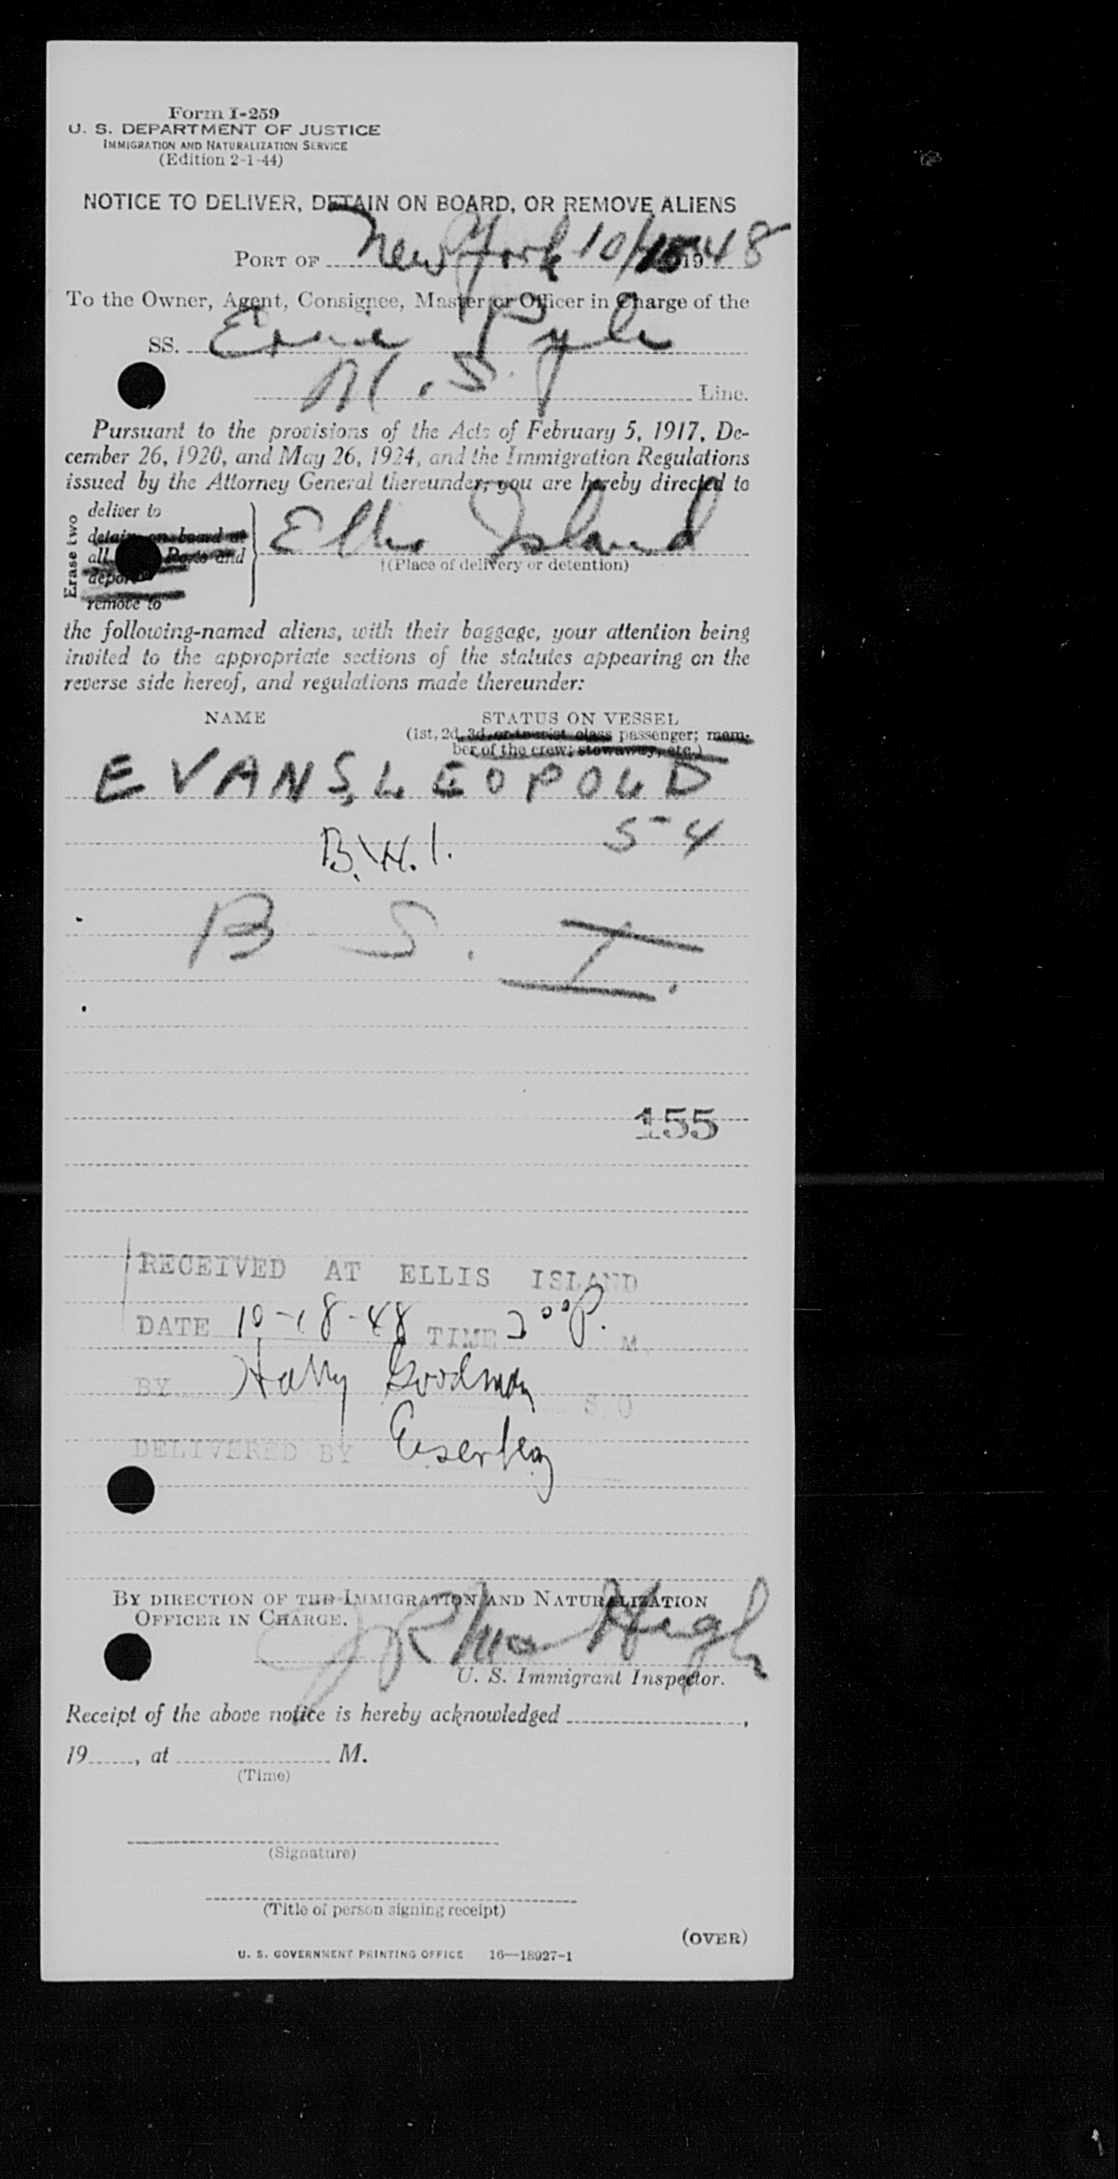 Form I-259
U. S. DEPARTMENT OF JUSTICE
IMMIGRATION AND NATURALIZATION SERVICE
(Edition 2-1-44)
NOTICE TO DELIVER, DETAIN ON BOARD, OR REMOVE ALIENS
PORT OF New York 10/ 1948
To the Owner, Agent, Consignee, Master or Officer in Charge of the
SS. Ernie Pyle
M. S. Line.
Pursuant to the provisions of the Acts of February 5, 1917, De-
cember 26, 1920, and May 26, 1924, and the Immigration Regulations
issued by the Attorney General thereunder, you are hereby directed to
Erase two
deliver to
detain on board at
all Ports and
deport
remove to
Ellis Island
†(Place of delivery or detention)
the following-named aliens, with their baggage, your attention being
invited to the appropriate sections of the statutes appearing on the
reverse side hereof, and regulations made thereunder:
NAME STATUS ON VESSEL
(1st, 2d, 3d, or tourist class passenger; mem-
ber of the crew; stowaway, etc.)
EVANS, LEOPOLD
B.W.I. 5-4
B. S. I.
155
RECEIVED AT ELLIS ISLAND
DATE 10-18-48 TIME 2 00 P. M.
BY Harry Goodman S O
DELIVERED BY
BY DIRECTION OF THE IMMIGRATION AND NATURALIZATION
OFFICER IN CHARGE.
U. S. Immigrant Inspector.
Receipt of the above notice is hereby acknowledged ,
19 , at M.
(Time)
(Signature)
(Title of person signing receipt)
(OVER)
U. S. GOVERNMENT PRINTING OFFICE 16—18927-1